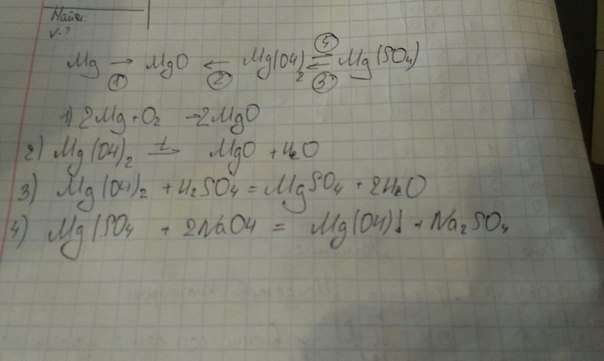 Найти:
v-?
Mg → MgO ← Mg(OH)₂ ⇌ Mg(SO₄)
① ② ④ ③
1) 2Mg + O₂ → 2MgO
2) Mg(OH)₂ =t MgO + H₂O
3) Mg(OH)₂ + H₂SO₄ = MgSO₄ + 2H₂O
4) Mg(SO₄ + 2NaOH = Mg(OH)↓ + Na₂SO₄